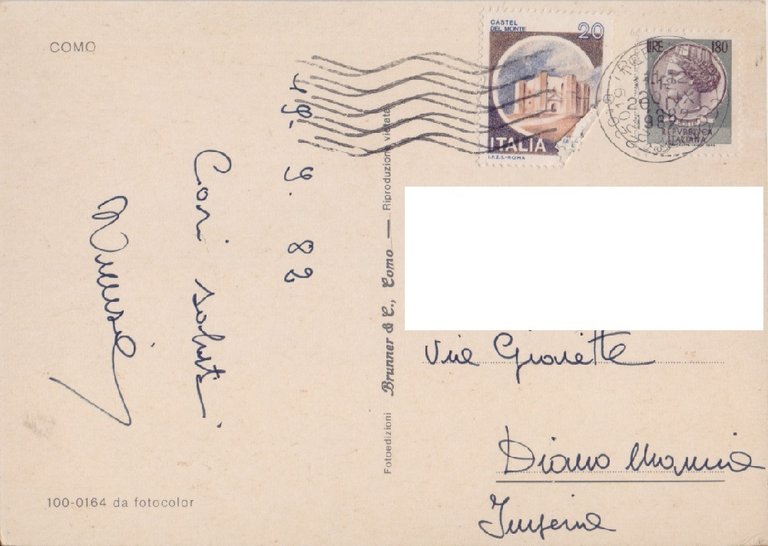 COMO
CASTEL
DEL MONTE
20
ITALIA
I.P.Z.S.-ROMA
LIRE 180
REPVBBLICA
ITALIANA
25019
1982
19. 9. 82
Cari saluti
Fotoedizioni Brunner & C., Como — Riproduzione vietata
Via Gioiette
Diano Marina
Imperia
100-0164 da fotocolor